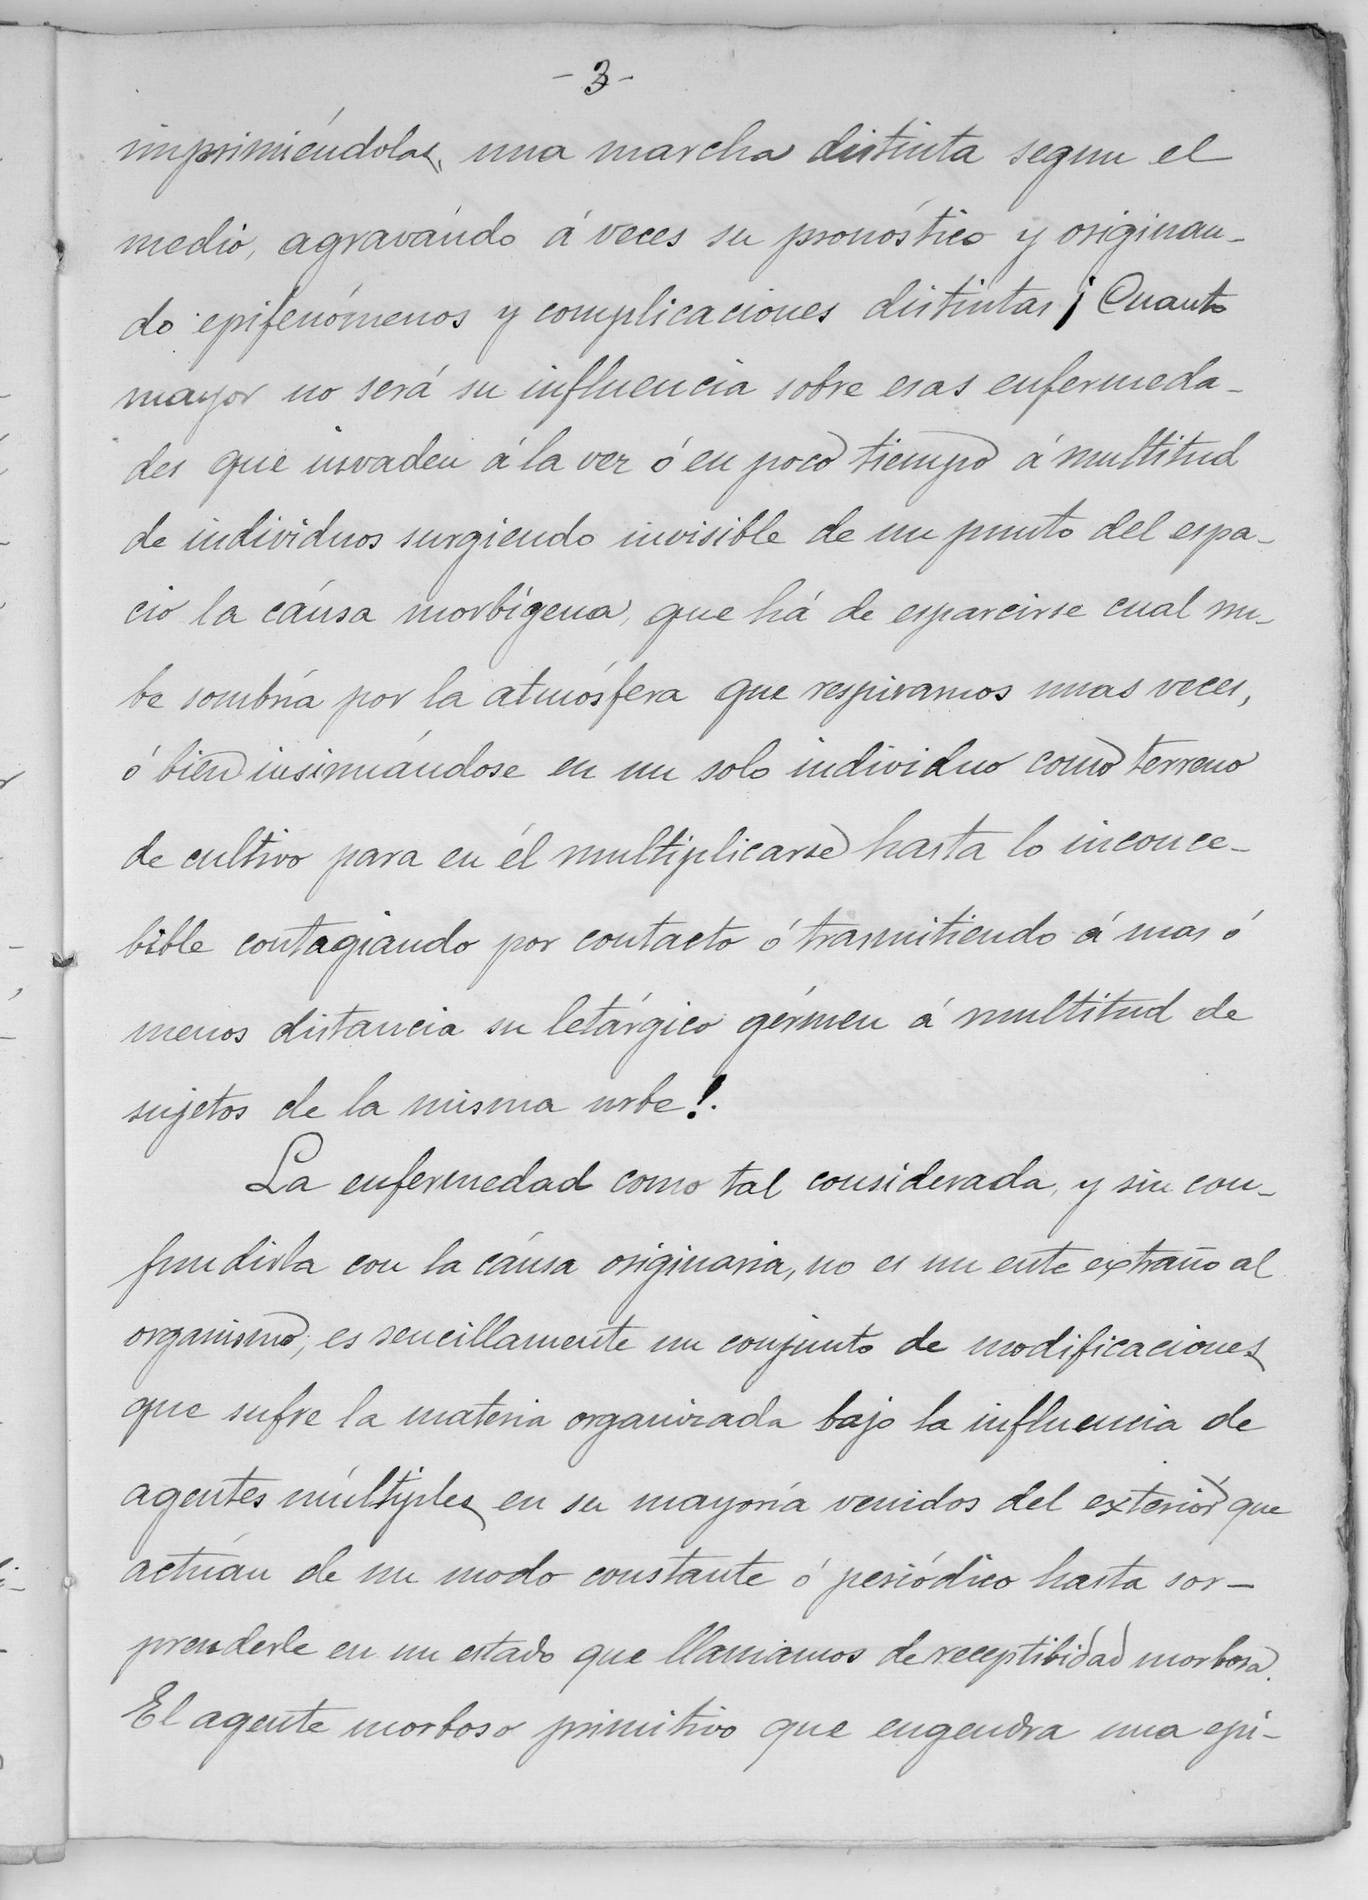 -3-
imprimiéndolas, una marcha distinta segun el
medio, agravándo á veces su pronóstico y originan-
do epifenómenos y complicaciones distintas ¡Cuanto
mayor no será su influencia sobre esas enfermeda-
des que invaden á la vez ó en poco tiempo á multitud
de individuos surgiendo invisible de un punto del espa-
cio la cáusa morbígena, que há de esparcirse cual nu-
be sombría por la atmósfera que respiramos unas veces,
ó bien insinuándose en un solo individuo como terreno
de cultivo para en él multiplicarse hasta lo inconce-
bible contagiando por contacto ó trasmitiendo á mas ó
menos distancia su letárgico gérmen á multitud de
sujetos de la misma urbe!.
La enfermedad como tal considerada, y sin con-
fundirla con la cáusa originaria, no es un ente extraño al
organismo, es sencillamente un conjunto de modificaciones
que sufre la materia organizada bajo la influencia de
agentes múltiples en su mayoría venidos del exterior que
actúan de un modo constante ó periódico hasta sor-
prenderle en un estado que llamamos de receptibidad morbosa.
El agente morboso primitivo que engendra una epi-